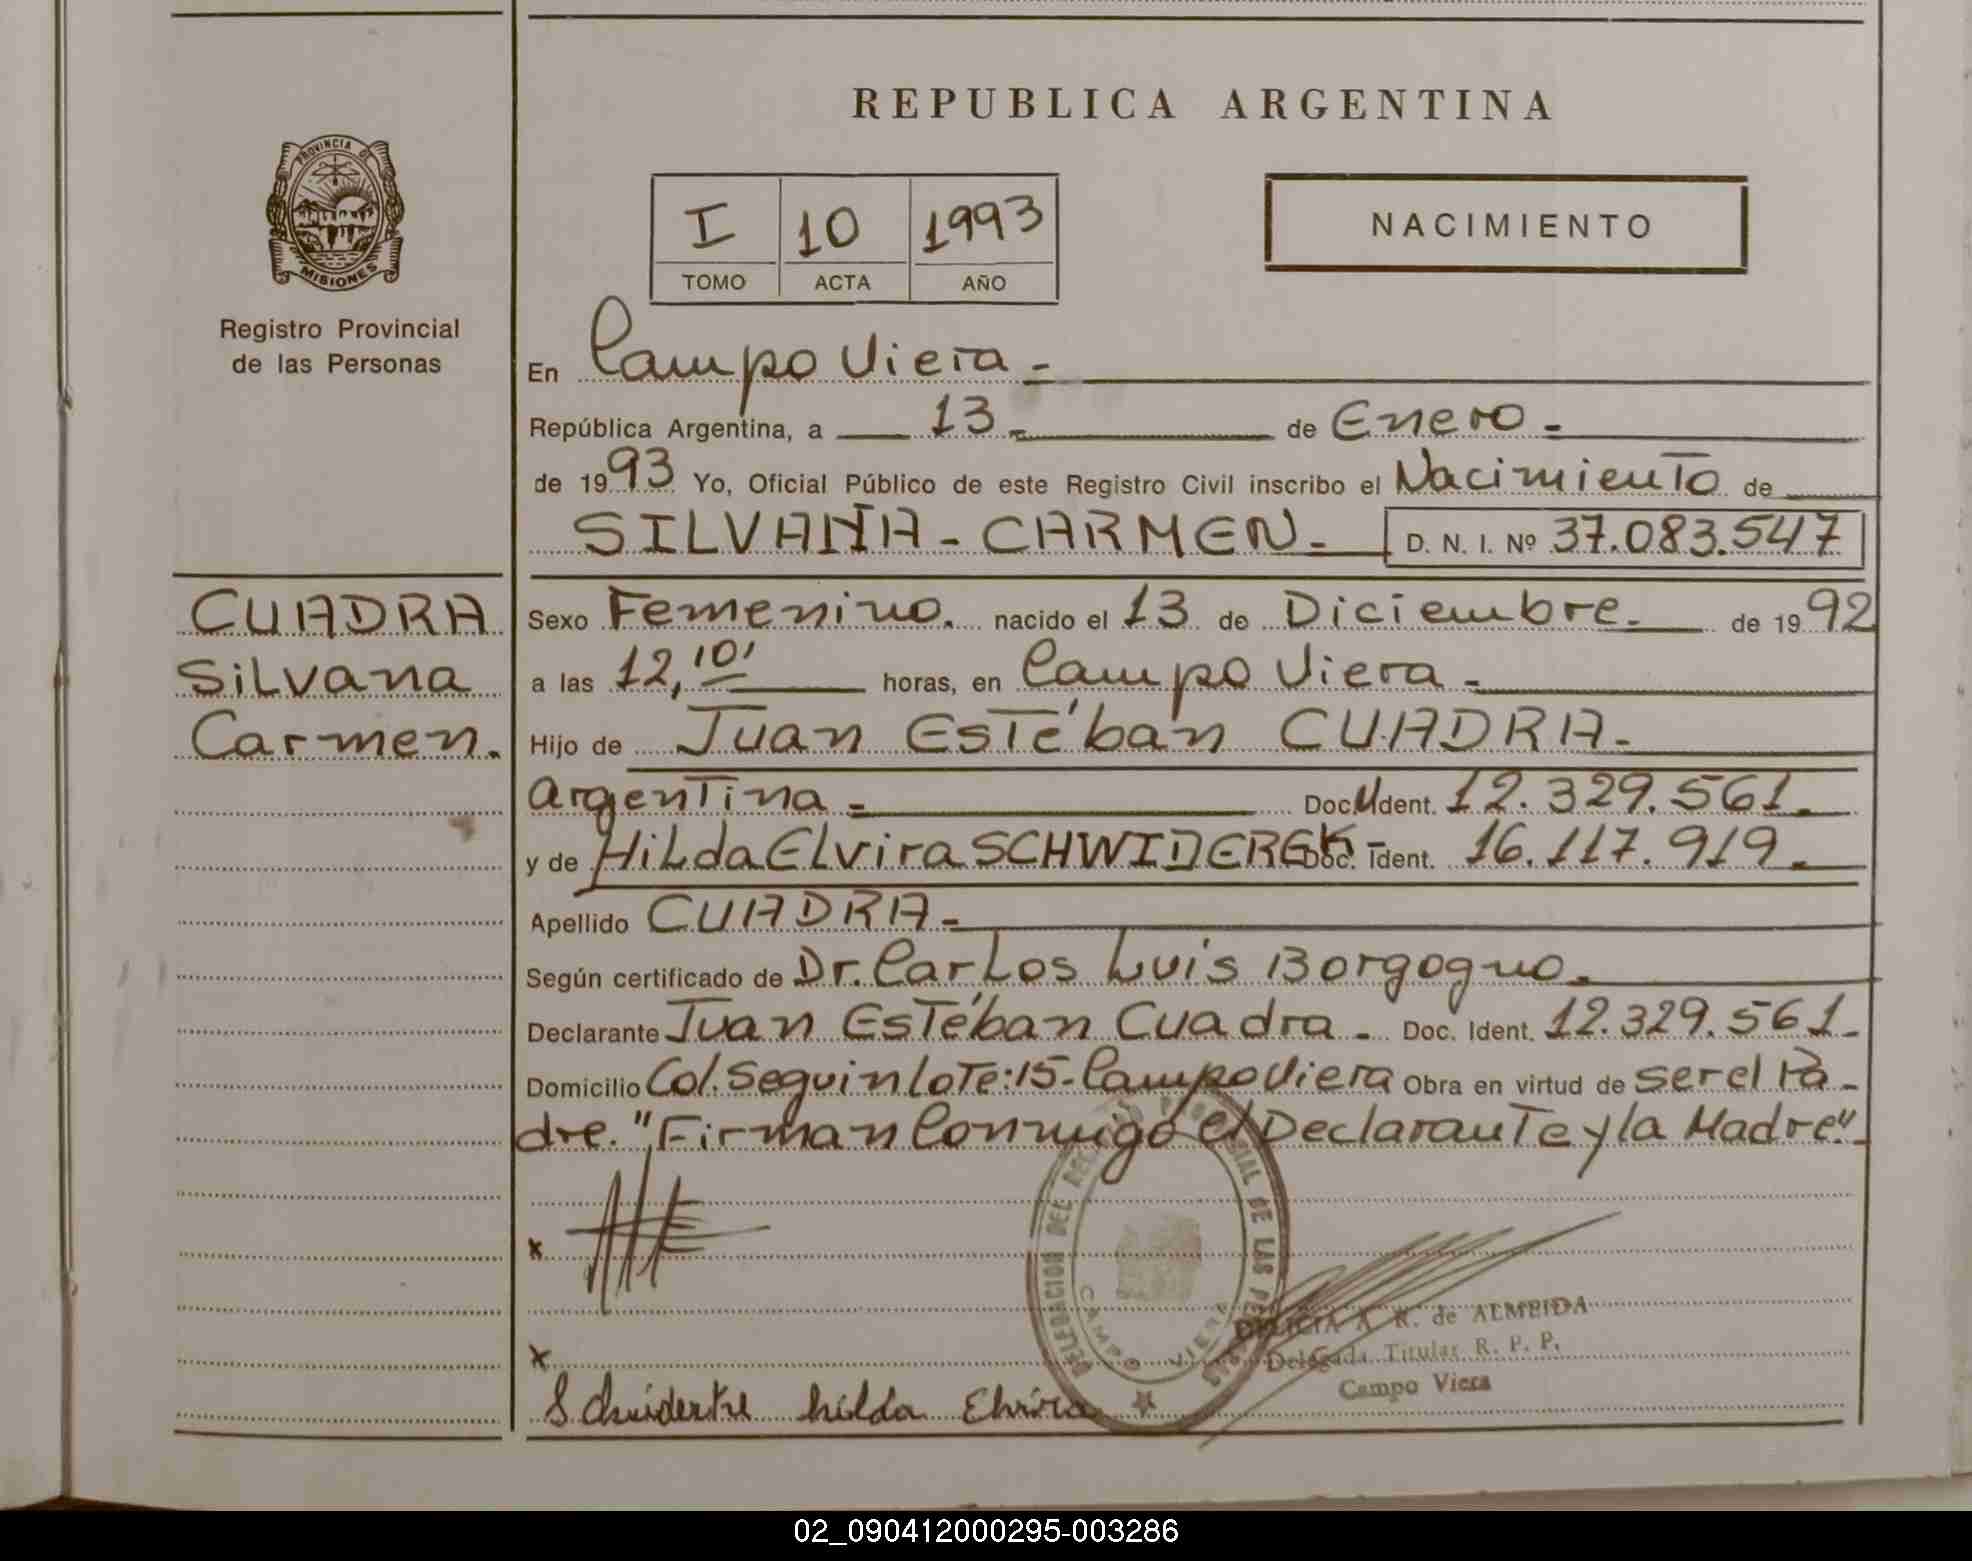 REPUBLICA ARGENTINA
PROVINCIA DE
MISIONES
Registro Provincial
de las Personas
I 10 1993
TOMO ACTA AÑO
NACIMIENTO
En Campo Viera -
República Argentina, a 13 - de Enero -
de 1993 Yo, Oficial Público de este Registro Civil inscribo el Nacimiento de
SILVANA - CARMEN - D. N. I. Nº 37.083.547
CUADRA
Silvana
Carmen.
Sexo Femenino. nacido el 13 de Diciembre. de 1992
a las 12,10' horas, en Campo Viera -
Hijo de Juan Estéban CUADRA -
Argentina - Doc. Ident. 12.329.561.
y de Hilda Elvira SCHWIDEREK Doc. Ident. 16.117.919.
Apellido CUADRA -
Según certificado de Dr. Carlos Luis Borgogno.
Declarante Juan Estéban Cuadra - Doc. Ident. 12.329.561-
Domicilio Col. Seguin Lote: 15 - Campo Viera Obra en virtud de ser el Pa-
dre. "Firman Conmigo el Declarante y la Madre".
x
DELEGACION DEL REGISTRO PROVINCIAL DE LAS PERSONAS
CAMPO VIERA
A. R. de ALMEIDA
Delegada Titular R. P. P.
Campo Viera
x
hilda Elvira
02_090412000295-003286